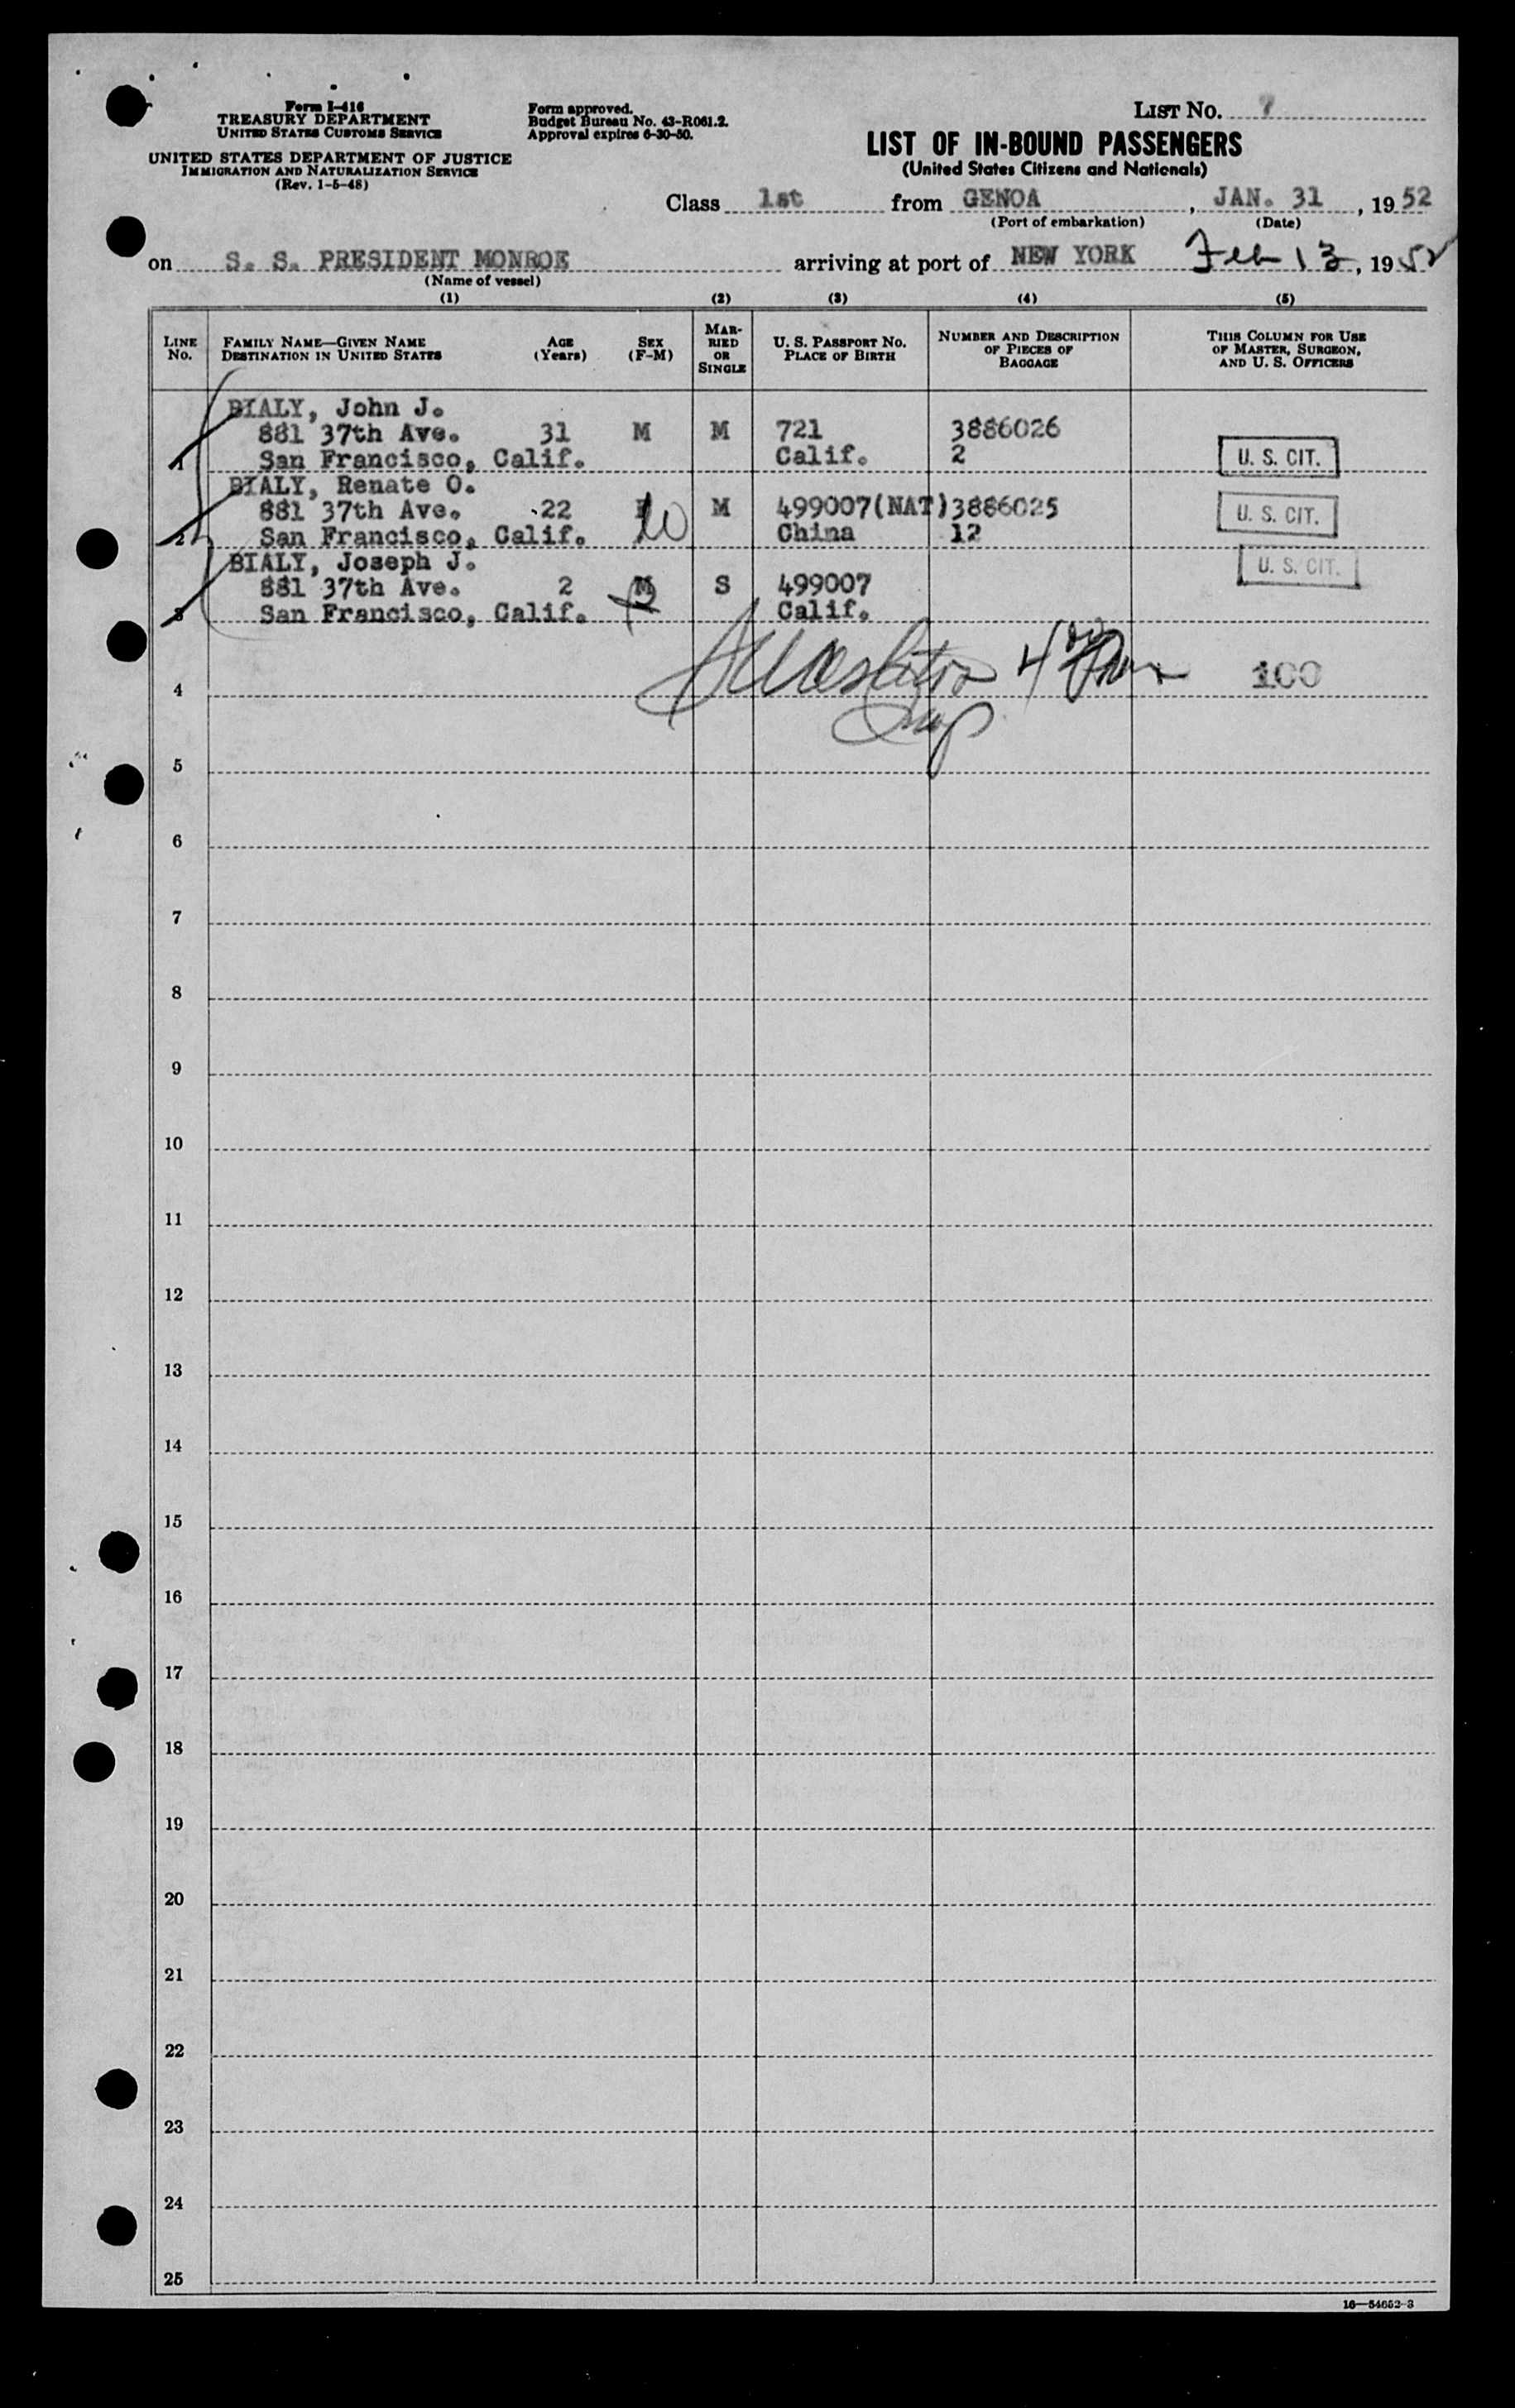 Form I-416
TREASURY DEPARTMENT
UNITED STATES CUSTOMS SERVICE
UNITED STATES DEPARTMENT OF JUSTICE
IMMIGRATION AND NATURALIZATION SERVICE
(Rev. 1-5-48)
Form approved.
Budget Bureau No. 43-R061.2.
Approval expires 6-30-50.
LIST No. 7
LIST OF IN-BOUND PASSENGERS
(United States Citizens and Nationals)
Class 1st from GENOA, JAN. 31, 1952
(Port of embarkation) (Date)
on S. S. PRESIDENT MONROE arriving at port of NEW YORK Feb 13, 1952
(Name of vessel)
(1) (2) (3) (4) (5)
LINE No. FAMILY NAME—GIVEN NAME DESTINATION IN UNITED STATES AGE (Years) SEX (F-M) MARRIED OR SINGLE U. S. PASSPORT No. PLACE OF BIRTH NUMBER AND DESCRIPTION OF PIECES OF BAGGAGE THIS COLUMN FOR USE OF MASTER, SURGEON, AND U. S. OFFICERS
BIALY, John J.
881 37th Ave. 31 M M 721 3886026
1 San Francisco, Calif. Calif. 2 U. S. CIT.
BIALY, Renate O.
881 37th Ave. 22 F M 499007(NAT) 3886025 U. S. CIT.
2 San Francisco, Calif. China 12
BIALY, Joseph J. U. S. CIT.
881 37th Ave. 2 M S 499007
3 San Francisco, Calif. Calif.
4 100
5
6
7
8
9
10
11
12
13
14
15
16
17
18
19
20
21
22
23
24
25
16—54652-3